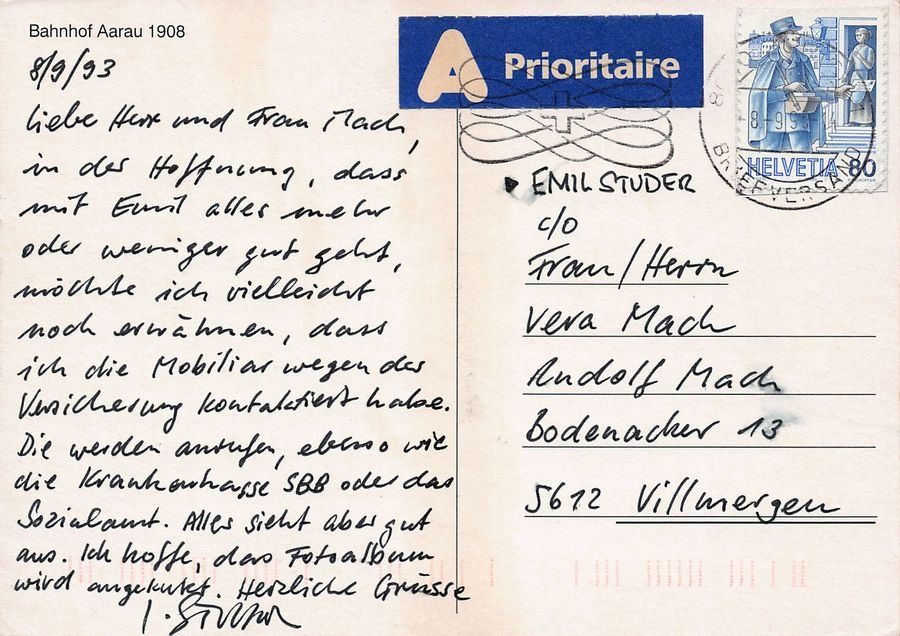 Bahnhof Aarau 1908
8/9/93
Liebe Herr und Frau Mach,
in der Hoffnung, dass
mit Emil alles mehr
oder weniger gut geht,
möchte ich vielleicht
noch erwähnen, dass
ich die Mobiliar wegen der
Versicherung kontaktiert habe.
Die werden anrufen, ebenso wie
die Krankenkasse SBB oder das
Sozialamt. Alles sieht aber gut
aus. Ich hoffe, das Fotoalbum
wird angekuckt. Herzliche Grüsse
A Prioritaire
HELVETIA 80
BRIEFVERSAND
EMIL STUDER
c/o
Frau/Herrn
Vera Mach
Rudolf Mach
Bodenacker 13
5612 Villmergen